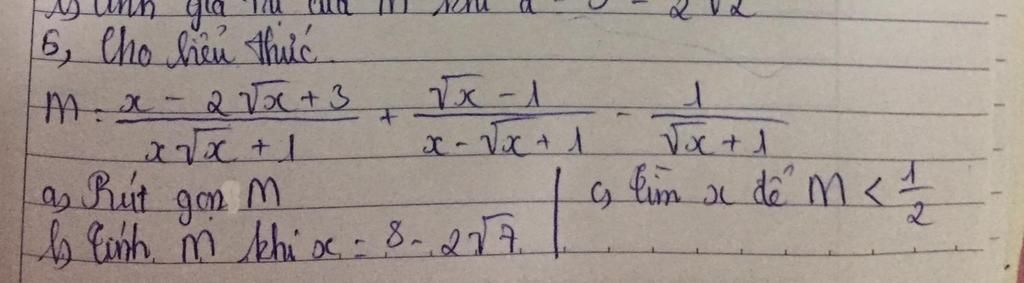 5, Cho biểu thức
M = \frac{x - 2\sqrt{x} + 3}{x\sqrt{x} + 1} + \frac{\sqrt{x} - 1}{x - \sqrt{x} + 1} - \frac{1}{\sqrt{x} + 1}
a, Rút gọn M
b, Tính M khi x = 8 - 2\sqrt{7}
c, Tìm x để M < \frac{1}{2}